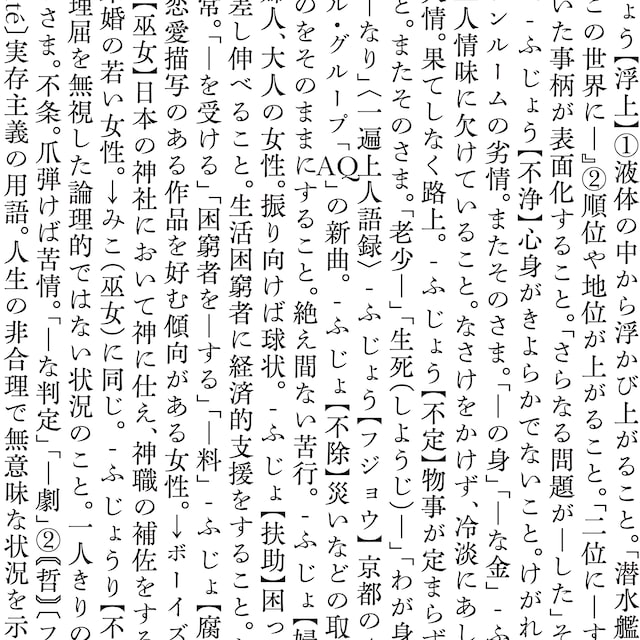 ょう【浮上】①液体の中から浮かび上がること。「潜水艦
この世界に―』②順位や地位が上がること。「二位に―す
いた事柄が表面化すること。「さらなる問題が―した」そ
- ふじょう【不浄】心身がきよらかでないこと。けがれ
ンルームの劣情。またそのさま。「―の身」「―な金」 - ふ
人情味に欠けていること。なさけをかけず、冷淡にあし
情。果てしなく路上。 - ふじょう【不定】物事が定まらず
と。またそのさま。「老少―」「生死(しようじ)―」「わが身
―なり」〈一遍上人語録〉 - ふじょう【フジョウ】京都の
ル・グループ「AQ」の新曲。 - ふじょ【不除】災いなどの取
のをそのままにすること。絶え間ない苦行。 - ふじょ【婦
婦人、大人の女性。振り向けば球状。 - ふじょ【扶助】困っ
差し伸べること。生活困窮者に経済的支援をすること。
常。「―を受ける」「困窮者を―する」「―料」 - ふじょ【腐
恋愛描写のある作品を好む傾向がある女性。→ボーイズ
【巫女】日本の神社において神に仕え、神職の補佐をする
婚の若い女性。→みこ(巫女)に同じ。 - ふじょうり【不
理屈を無視した論理的ではない状況のこと。一人きりの
さま。不条。爪弾けば苦情。「―な判定」「―劇」②〘哲〙〔フ
te〕実存主義の用語。人生の非合理で無意味な状況を示